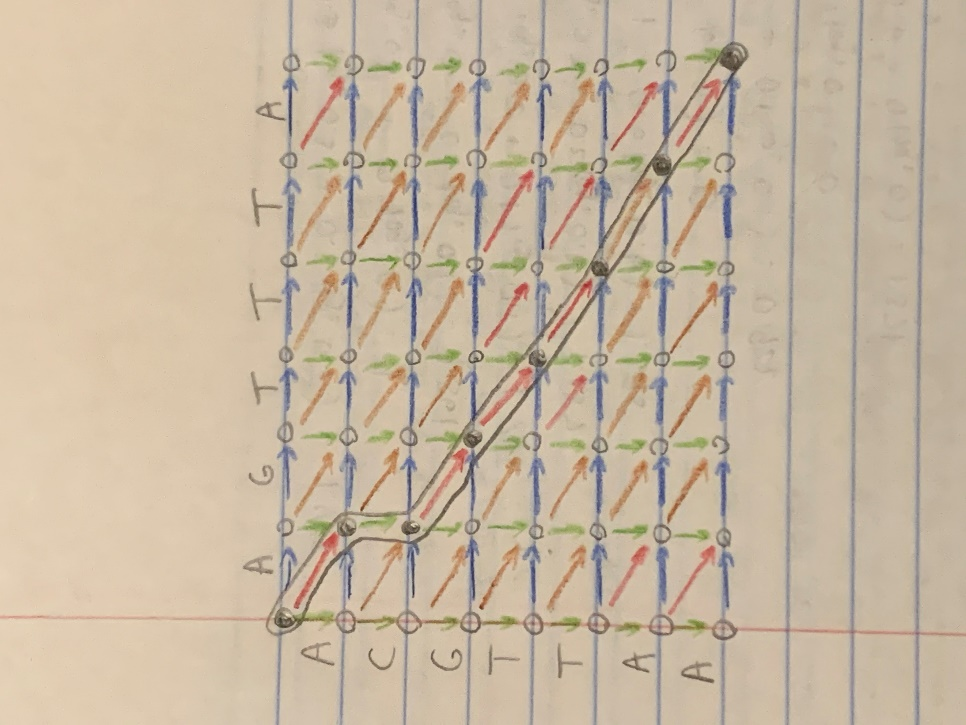 A G T T T A
A C G T T A A